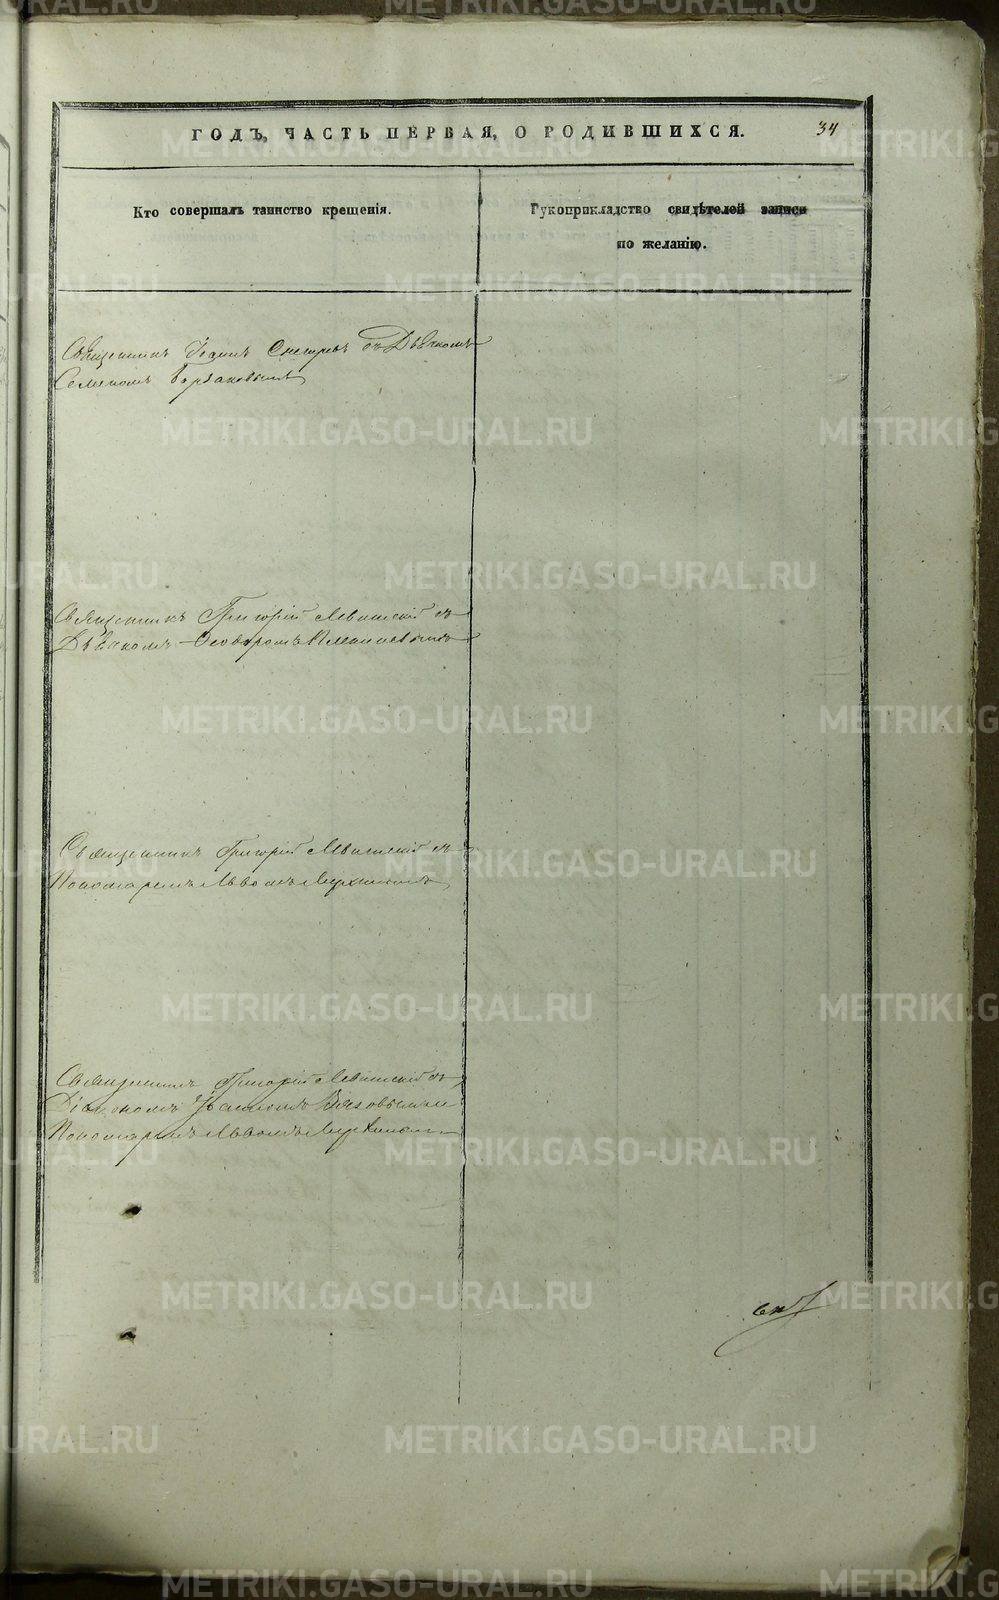 ГОДЪ, ЧАСТЬ ПЕРВАЯ, О РОДИВШИХСЯ.
34
Кто совершалъ таинство крещенія.
Рукоприкладство свидѣтелей записи
по желанію.
Священникъ Іоаннъ съ Дьячкомъ
Священникъ Григорій Левитскій съ
Дьячкомъ Ѳеодоромъ
Священникъ Григорій Левитскій съ
Пономаремъ Львомъ
Священникъ Григорій Левитскій съ
Діакономъ Іоанномъ
Пономаремъ Львомъ
METRIKI.GASO-URAL.RU